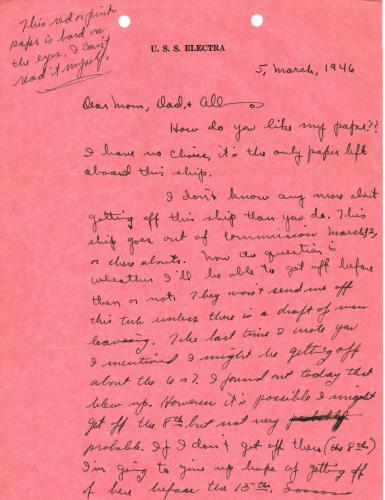 This red or pink
paper is hard on
the eyes. I can't
read it myself.
U. S. S. ELECTRA
5, March, 1946
Dear Mom, Dad, & All
How do you like my paper??
I have no choice, it's the only paper left
aboard this ship.
I don't know any more about
getting off this ship than you do. This
ship goes out of commission March 12,
or there abouts. Now the question is
wheather I'll be able to get off before
then or not. They won't send me off
this tub unless there is a draft of men
leaveing. The last time I wrote you
I mentioned I might be getting off
about the 6 or 7. I found out today that
blew up. However it's possible I might
get off the 8th but not very
probable. If I don't get off then (the 8th)
I'm going to give up hope of getting off
of here before the 15th.